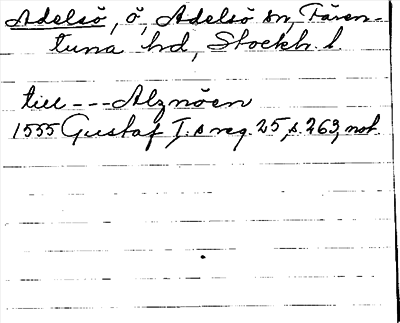 Adelsö, ö, Adelsö sn, Fären-
tuna hd, Stockh. l.
till --- Alznöen
1555 Gustaf I:s reg. 25, s. 263, not.